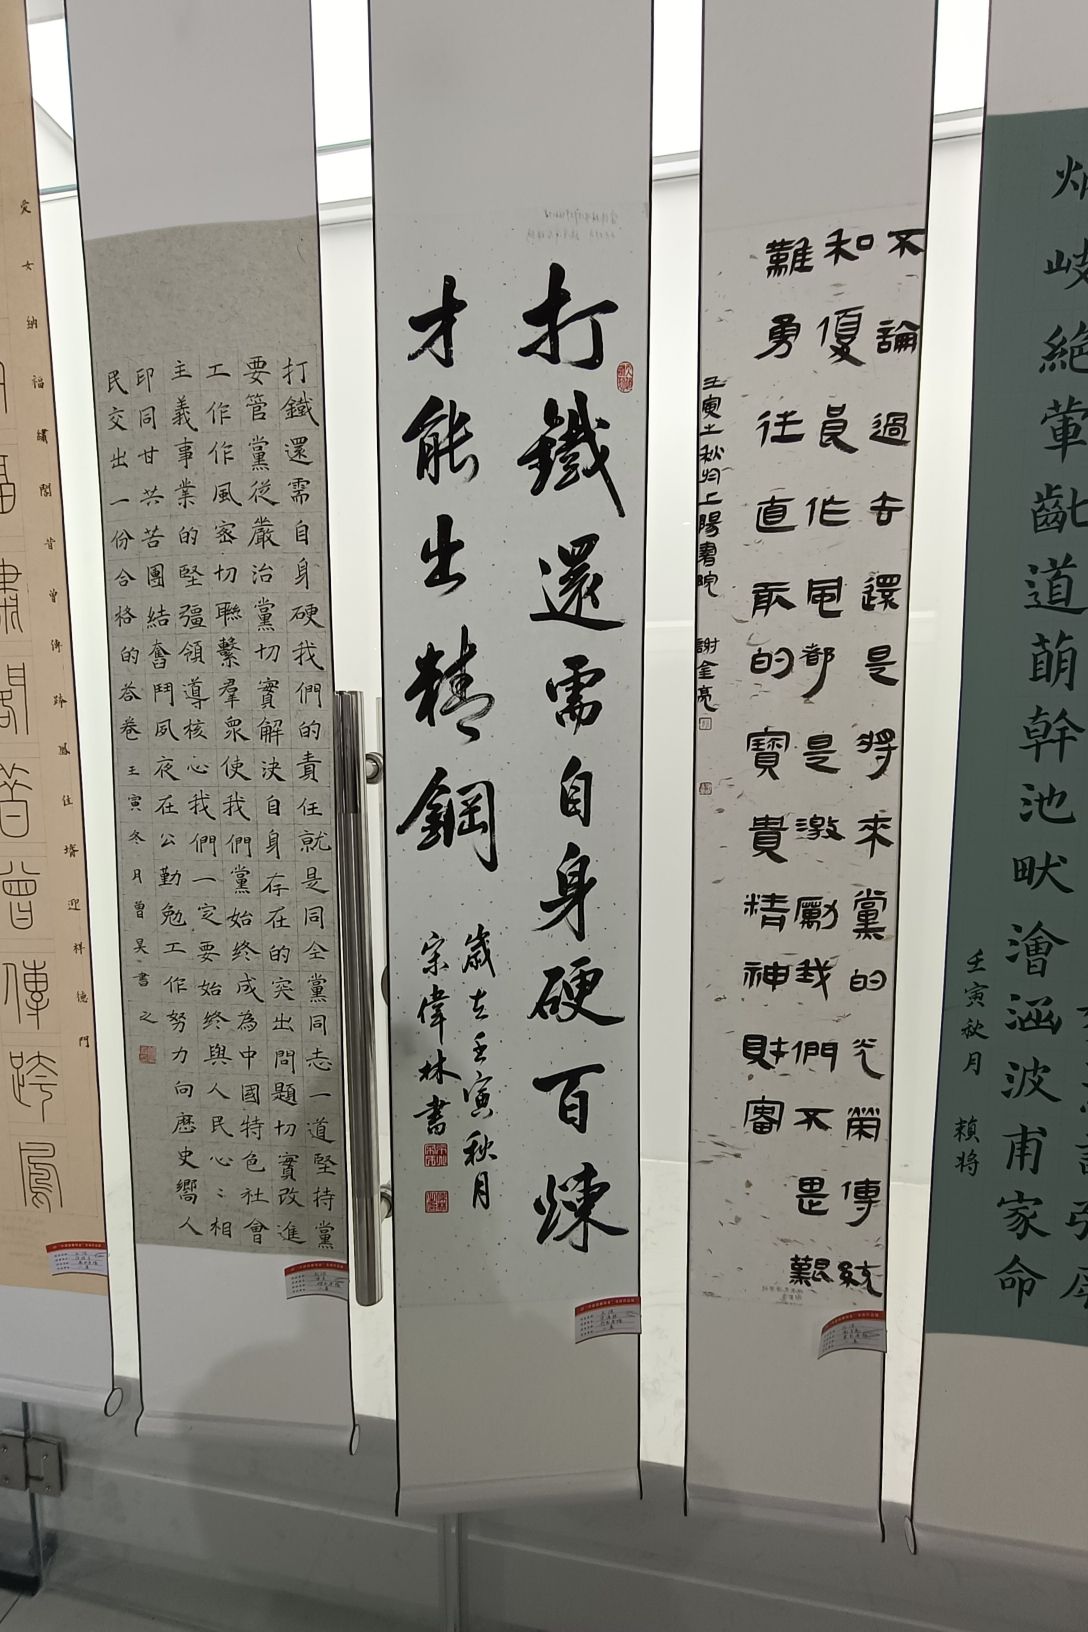 受女納福繡閣昔曾傳跨鳳住壻迎祥德門
閣
昔
曾
傳
跨
鳳
打鐵還需自身硬我們的責任就是同全黨同志一道堅持黨
要管黨從嚴治黨切實解決自身存在的突出問題切實改進
工作作風密切聯繫羣眾使我們黨始終成為中國特色社會
主義事業的堅彊領導核心我們一定要始終與人民心〻相
印同甘共苦團結奮鬥夙夜在公勤勉工作努力向歷史嚮人
民交出一份合格的答卷
王寅冬月曾昊書之
打鐵還需自身硬百煉
才能出精鋼
歲在壬寅秋月
宋偉林書
不論過去還是將來黨的光榮傳統
和優良作風都是激勵我們不畏艱
難勇往直前的寶貴精神財富
壬寅之秋於上陽書院 謝金亮
岐絕葷齠道萌幹池畎澮涵波甫家命
壬寅秋月 賴將